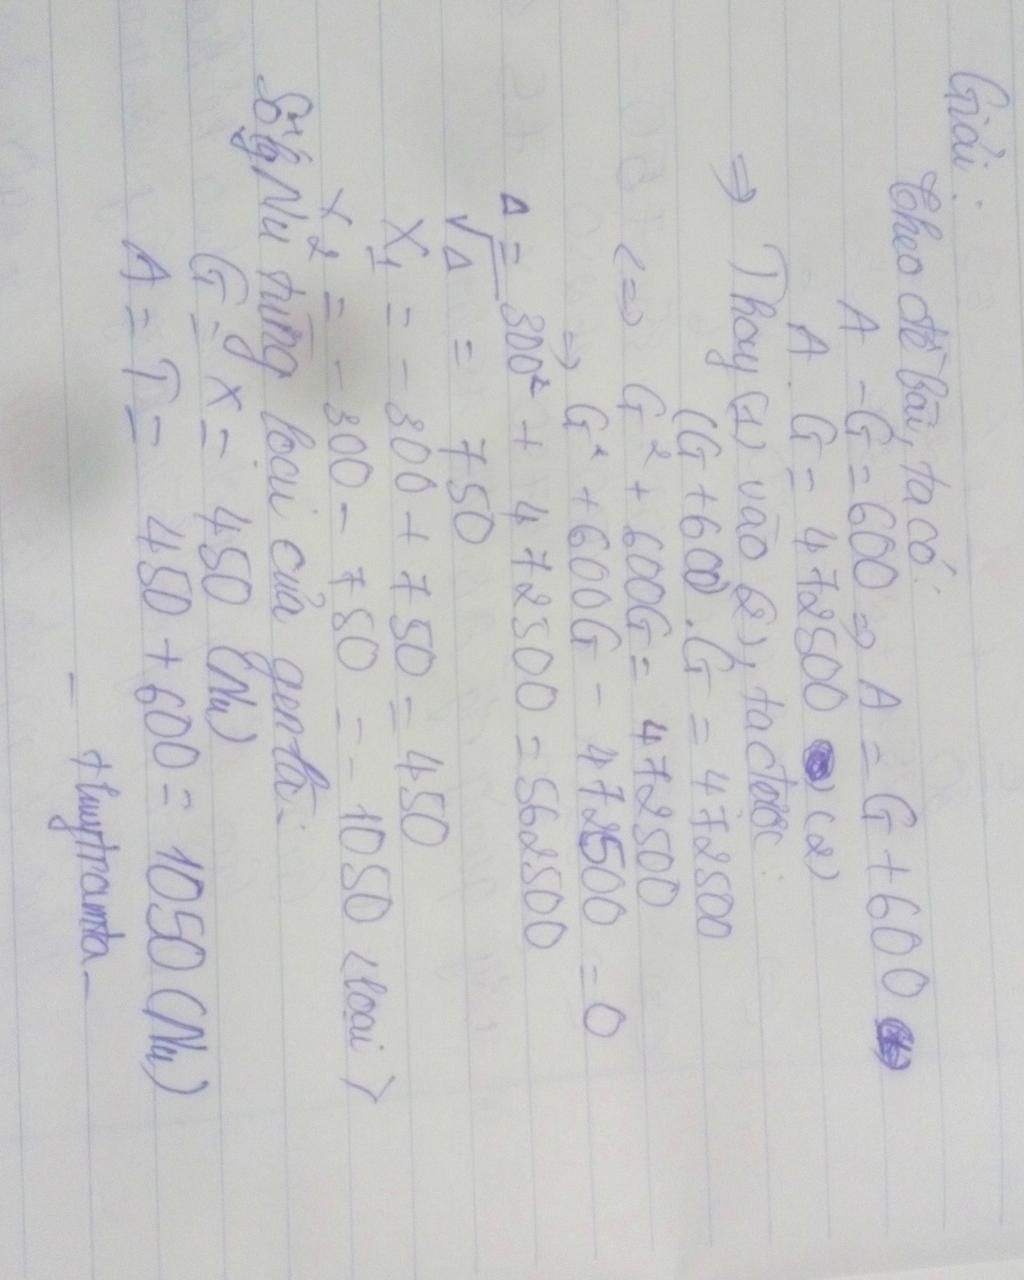 Giải:
Theo đề bài, ta có:
A - G = 600 => A = G + 600 (1)
A . G = 472500 (2)
=> Thay (1) vào (2), ta được:
(G + 600) . G = 472500
<=> G² + 600G = 472500
=> G² + 600G - 472500 = 0
Δ = 300² + 472500 = 562500
√Δ = 750
X1 = - 300 + 750 = 450
X2 = - 300 - 750 = - 1050 <loại>
Số lg Nu từng loại của gen là:
G = X = 450 (Nu)
A = T = 450 + 600 = 1050 (Nu)
- thuytramta -